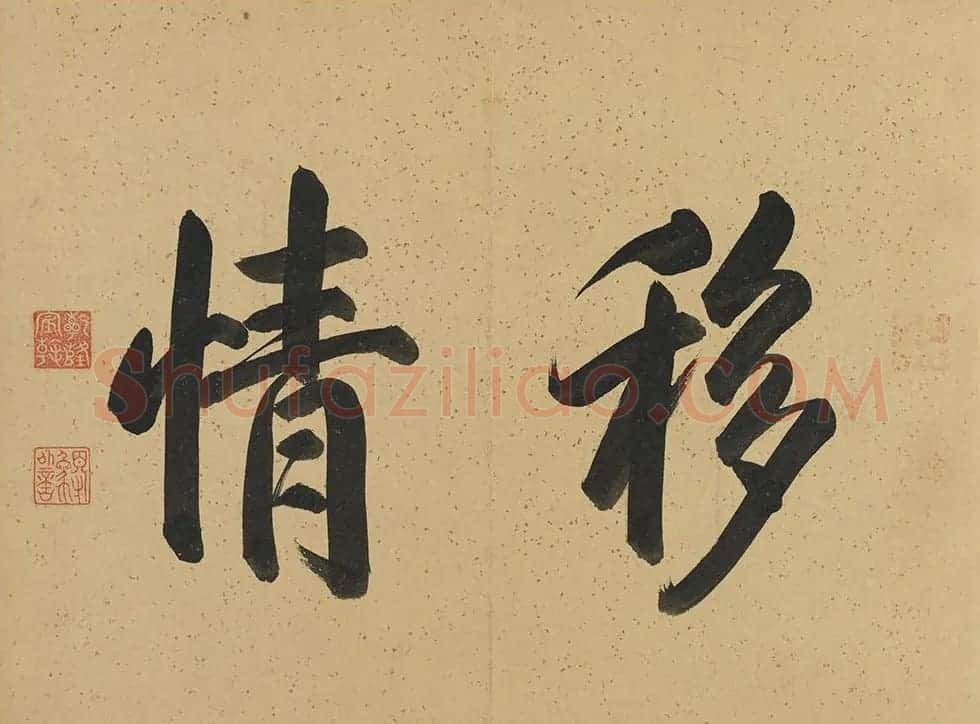 移情
乾隆宸翰
Shufaziliao.COM